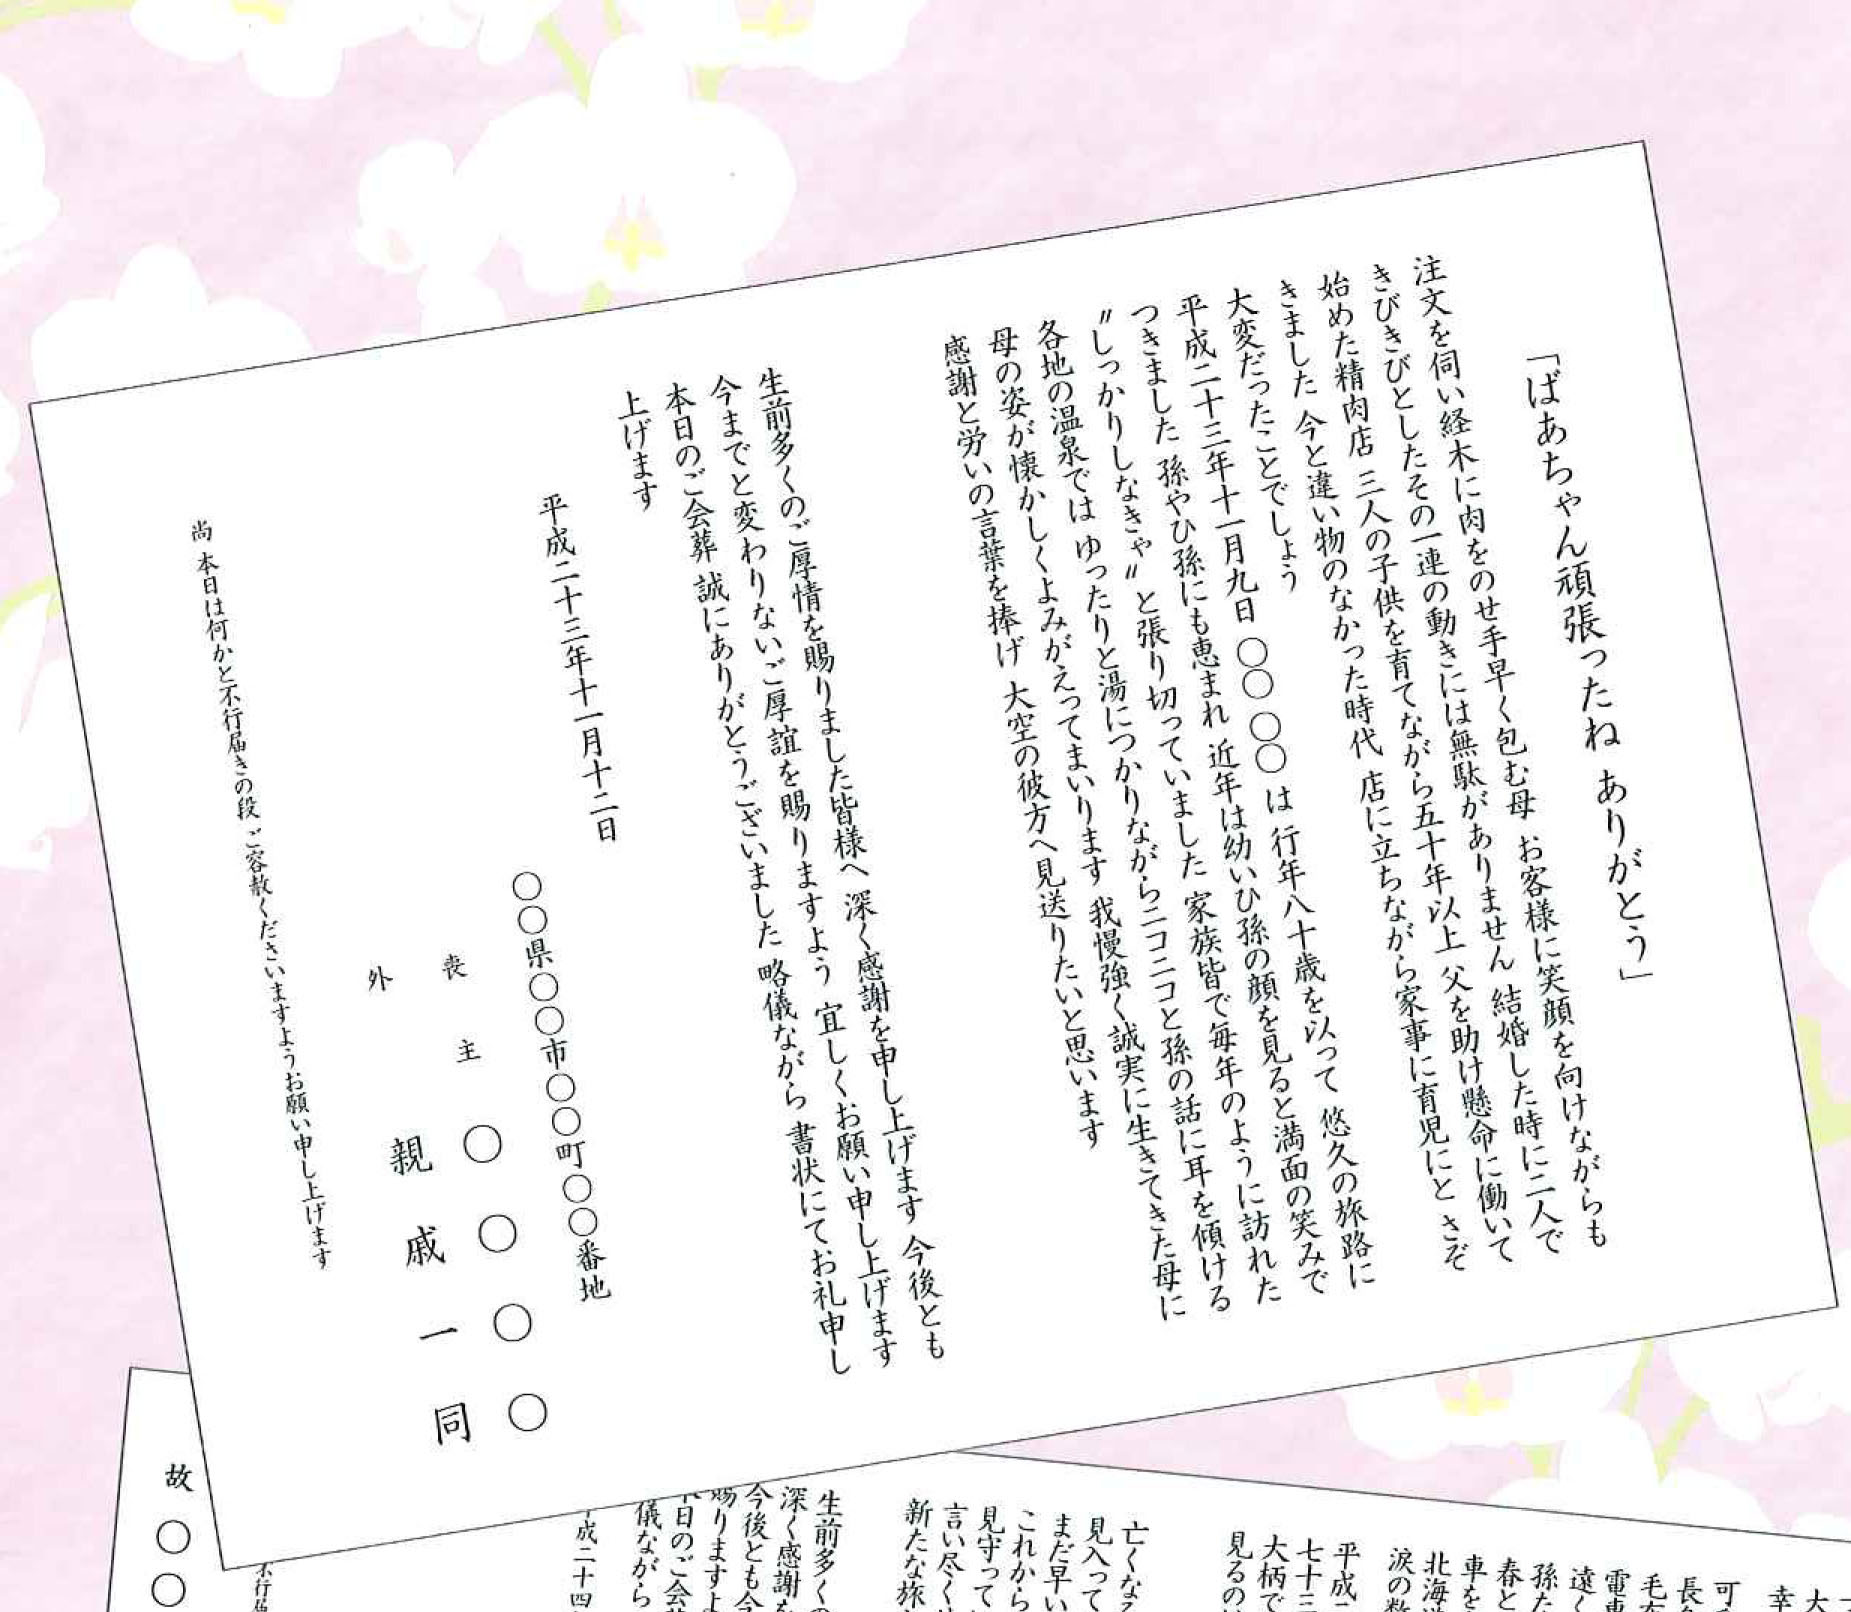 「ばあちゃん頑張ったね ありがとう」
注文を伺い経木に肉をのせ手早く包む母 お客様に笑顔を向けながらも
きびきびとしたその一連の動きには無駄がありません 結婚した時に二人で
始めた精肉店 三人の子供を育てながら五十年以上 父を助け懸命に働いて
きました 今と違い物のなかった時代 店に立ちながら家事に育児にと さぞ
大変だったことでしょう
平成二十三年十一月九日 〇〇 〇〇 は 行年八十歳を以って 悠久の旅路に
つきました 孫やひ孫にも恵まれ 近年は幼いひ孫の顔を見ると満面の笑みで
〝しっかりしなきゃ〟と張り切っていました 家族皆で毎年のように訪れた
各地の温泉では ゆったりと湯につかりながらニコニコと孫の話に耳を傾ける
母の姿が懐かしくよみがえってまいります 我慢強く誠実に生きてきた母に
感謝と労いの言葉を捧げ 大空の彼方へ見送りたいと思います
生前多くのご厚情を賜りました皆様へ 深く感謝を申し上げます 今後とも
今までと変わりないご厚誼を賜りますよう 宜しくお願い申し上げます
本日のご会葬 誠にありがとうございました 略儀ながら 書状にてお礼申し
上げます
平成二十三年十一月十二日
〇〇県〇〇市〇〇町〇〇番地
喪主 〇〇〇〇
外 親戚一同
尚 本日は何かと不行届きの段 ご容赦くださいますようお願い申し上げます
大
幸
可
長
毛
電車
遠く
孫た
春と
車を
北海道
涙の数
平成二
七十三
大柄で
見るの
亡くなる
見入って
まだ早い
これから
見守って
言い尽く
新たな旅
生前多くの
深く感謝を
今後とも今
賜りますよ
本日のご会葬
儀ながら
平成二十四
不行届
故 〇〇